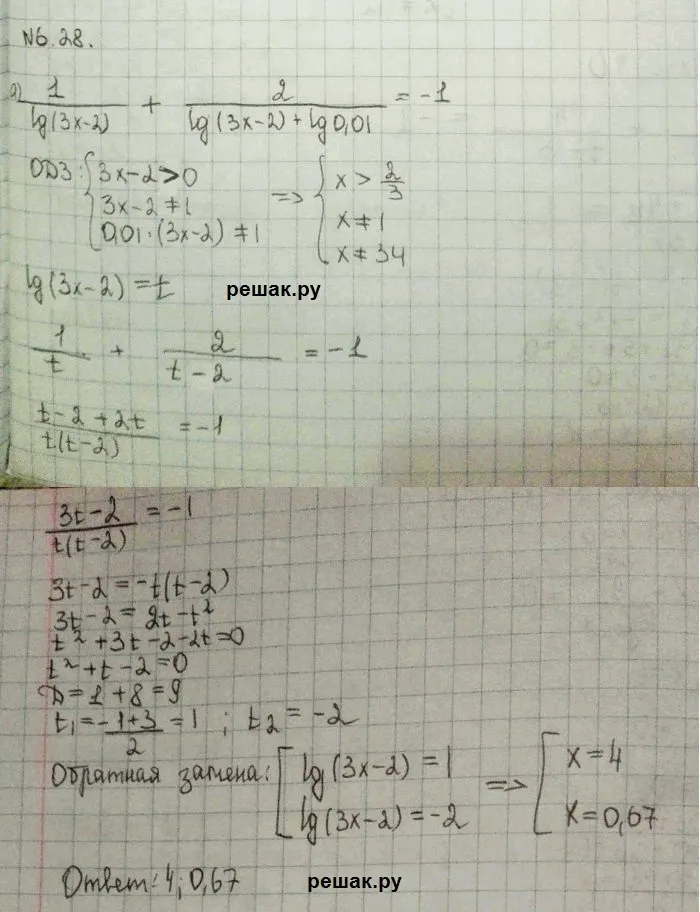 №6.28.
а) 1/(lg(3x-2)) + 2/(lg(3x-2)+lg0,01) = -1
ОДЗ: { 3x-2>0 => { x > 2/3
3x-2≠1 x≠1
0,01·(3x-2)≠1 x≠34
lg(3x-2)=t решак.ру
1/t + 2/(t-2) = -1
(t-2+2t)/(t(t-2)) = -1
(3t-2)/(t(t-2)) = -1
3t-2=-t(t-2)
3t-2=2t-t²
t²+3t-2-2t=0
t²+t-2=0
D=1+8=9
t₁=(-1+3)/2=1 ; t₂=-2
Обратная замена: [ lg(3x-2)=1 => [ x=4
lg(3x-2)=-2 x=0,67
Ответ: 4; 0,67 решак.ру